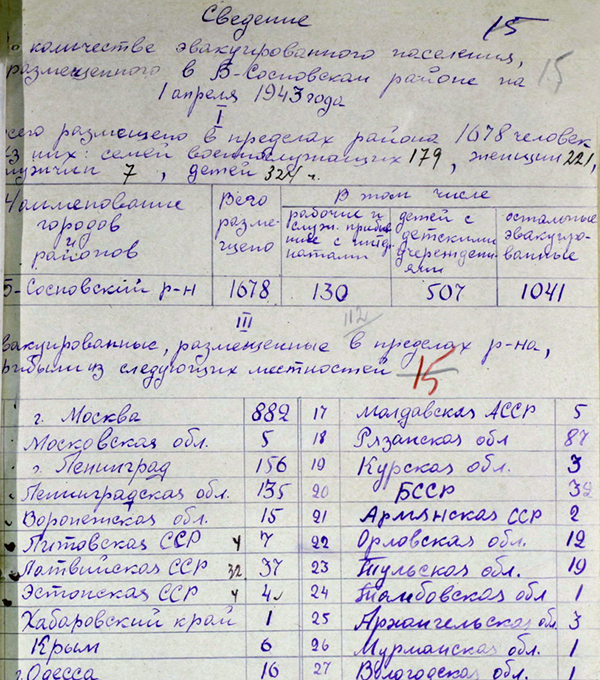 Сведение
15
о количестве эвакуированного населения,
размещенного в Б-Сосновском районе на
15
1 апреля 1943 года
I
его размещено в пределах района 1678 человек
Из них: семей военнослужащих 179, женщин 221,
мужчин 7, детей 321 ч.
Наименование городов и районов
Всего размещено
В том числе
рабочие и служ. прибывшие с
детей с детскими учереждениями
остальные эвакуированные
Б-Сосновский р-н 1678 130 507 1041
III
112
вакуированные, размещенные в пределах р-на,
прибыли из следующих местностей
15
г. Москва 882 17 Молдавская АССР 5
Московская обл. 5 18 Рязанская обл 87
г. Ленинград 156 19 Курская обл. 3
Ленинградская обл. 135 20 БССР 32
Воронежская обл. 15 21 Армянская ССР 2
Литовская ССР 4 7 22 Орловская обл. 12
Латвийская ССР 32 37 23 Тульская обл. 19
Эстонская ССР 4 4 24 Тамбовская обл 1
Хабаровский край 1 25 Архангельская обл. 3
Крым 6 26 Мурманская обл. 1
г. Одесса 16 27 Вологодская обл. 1